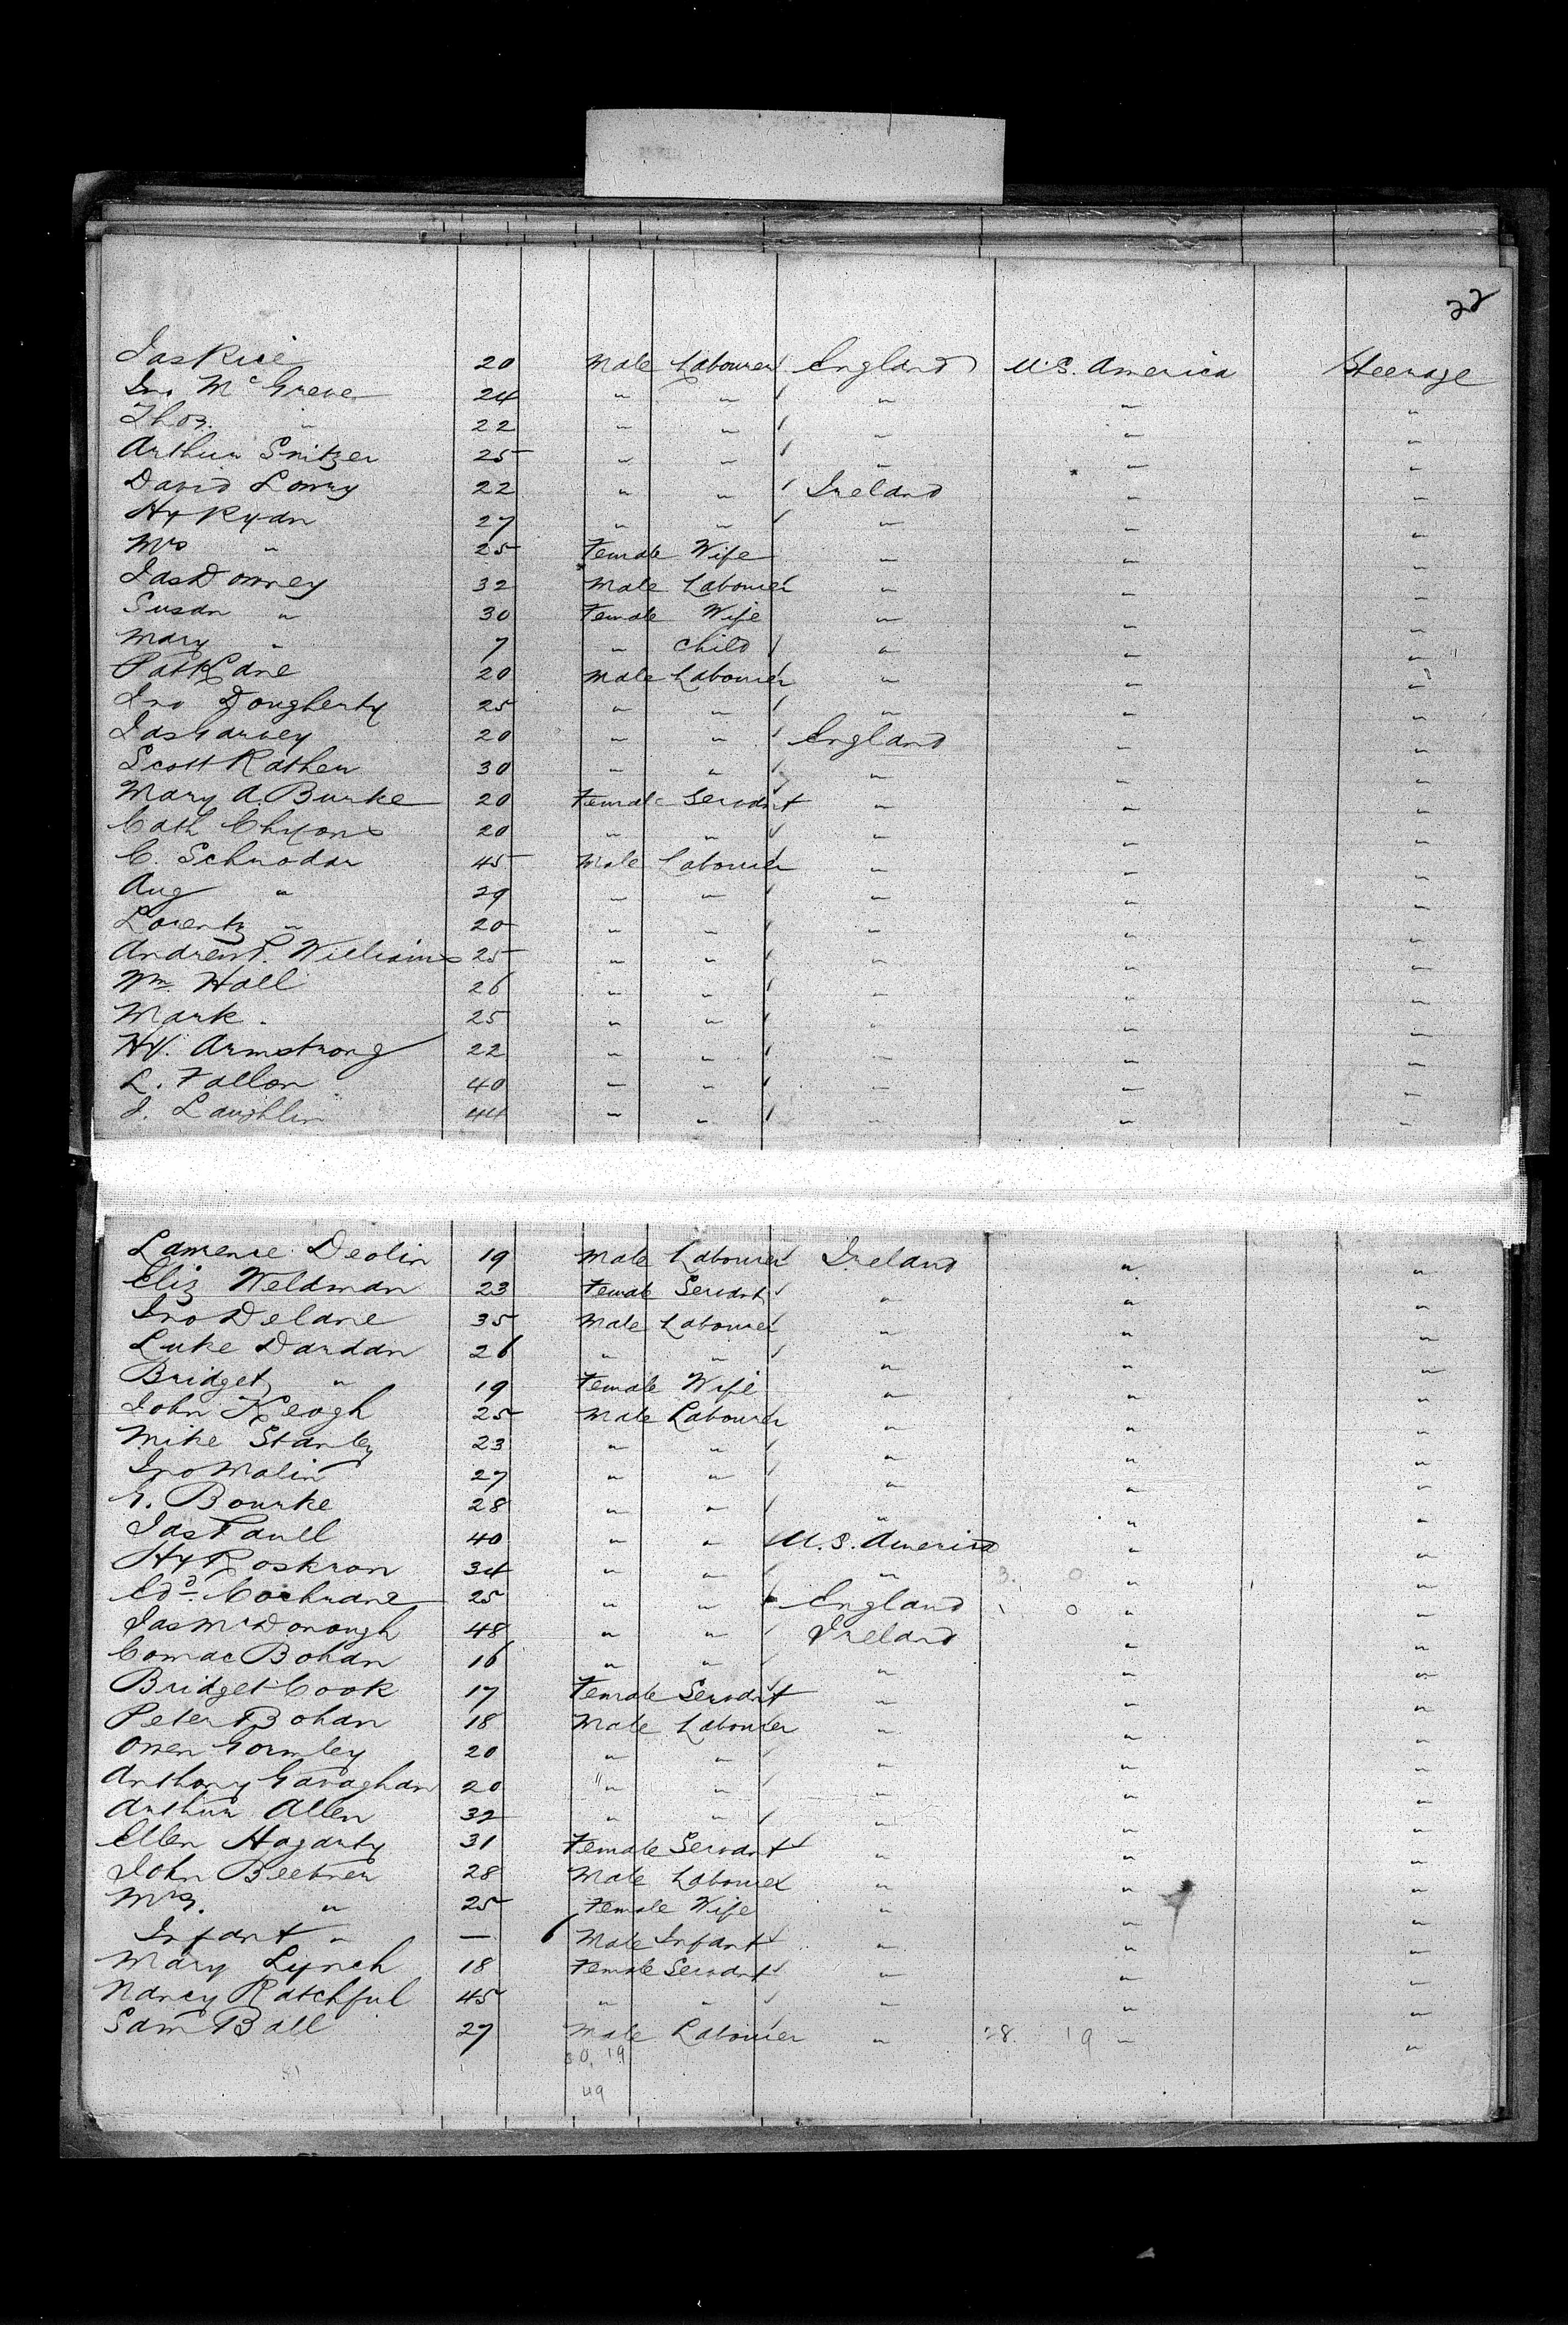 22
Jas Rice 20 Male Labourer / England U.S. America Steerage
Jno McGreve 24 " " / " " "
Thos. " 22 " " / " " "
Arthur Snitzer 25 " " / " " "
David Lowry 22 " " / Ireland " "
Hy Ryan 27 " " / " " "
Mrs " 25 Female Wife " " "
Jas Downey 32 Male Labourer " " "
Susan " 30 Female Wife " " "
Mary " 7 " Child / " " "
Patk Lane 20 Male Labourer " " "
Jno Dougherty 25 " " / " " "
Jas Garvey 20 " " / England " "
Scott Rathen 30 " " / " " "
Mary A. Burke 20 Female Servant " " "
Cath 20 " " / " " "
C. Schrodar 45 Male Labourer " " "
Aug " 29 " " / " " "
Lorentz " 20 " " / " " "
Andrew P. Williams 25 " " / " " "
Wm. Hall 26 " " / " " "
Mark " 25 " " / " " "
Armstrong 22 " " / " " "
L. Fallon 40 " " / " " "
J. Laughlin 44 " " / " " "
Lawrence Deolin 19 Male Labourer Ireland " "
Eliz Weldman 23 Female Servant / " " "
Jno Delane 35 Male Labourer " " "
Luke Dardan 26 " " / " " "
Bridget " 19 Female Wife " " "
John Keogh 25 Male Labourer " " "
Mike Stanley 23 " " / " " "
Jno Malin 27 " " / " " "
Bourke 28 " " / " " "
Jas 40 " " U.S. America " "
Hy Roskron 34 " " / " 3. 0 " "
Edd. Cochrane 25 " " / England 1 0 " "
Jas McDonough 48 " " / Ireland " "
Comac Bohan 16 " " / " " "
Bridget Cook 17 Female Servant " " "
Peter Bohan 18 Male Labourer " " "
Owen Gormley 20 " " / " " "
Anthony Gavaghan 20 " " / " " "
Arthur Allen 32 " " / " " "
Ellen Hagarty 31 Female Servant / " " "
John Beebner 28 Male Labourer " " "
Mrs. " 25 Female Wife " " "
Infant " — 6 Male Infant / " " "
Mary Lynch 18 Female Servant / " " "
Nancy Ratchful 45 " " / " " "
Sam Ball 27 Male Labourer " 28. 19 " "
30. 19
49